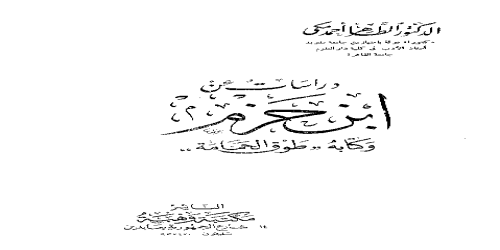 الدكتور الطاهر أحمد مكى
دكتوراه دولة بامتياز من جامعة مدريد
أستاذ الأدب فى كلية دار العلوم
جامعة القاهرة
دراسات عن
ابن حزم
وكتابه "طوق الحمامة"
الناشر
مكتبة وهبة
١٤ شارع الجمهورية بعابدين